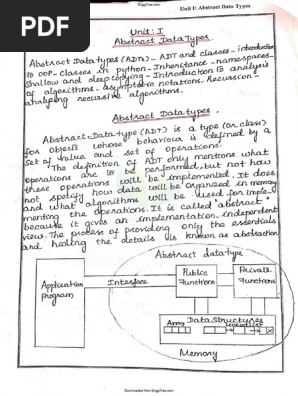 EnggTree.com
Unit I: Abstract Data Types
PDF
Unit: I
Abstract Data Types
Abstract Data types (ADTs) - ADT and classes - introduction
to OOP - classes in python - Inheritance - namespaces -
Shallow and deep copying - Introduction to analysis
of algorithms - asymptotic notations - Recursion -
analyzing recursive algorithms.
Abstract Data types.
Abstract Data type (ADT) is a type (or class)
for objects whose behaviour is defined by a
set of value and set of operations.
The definition of ADT only mentions what
operations are to be performed, but not how
these operations will be implemented. It does
not specify how data will be organized in memory
and what algorithms will be used for imple-
menting the operations. It is called "abstract"
because it gives an implementation-independent
view. The process of providing only the essentials
and hiding the details is known as abstraction
Abstract data type
Application
Program
Interface
Public
Functions
Private
Functions
Data Structures
Array
Linked List
Memory
Downloaded from EnggTree.com